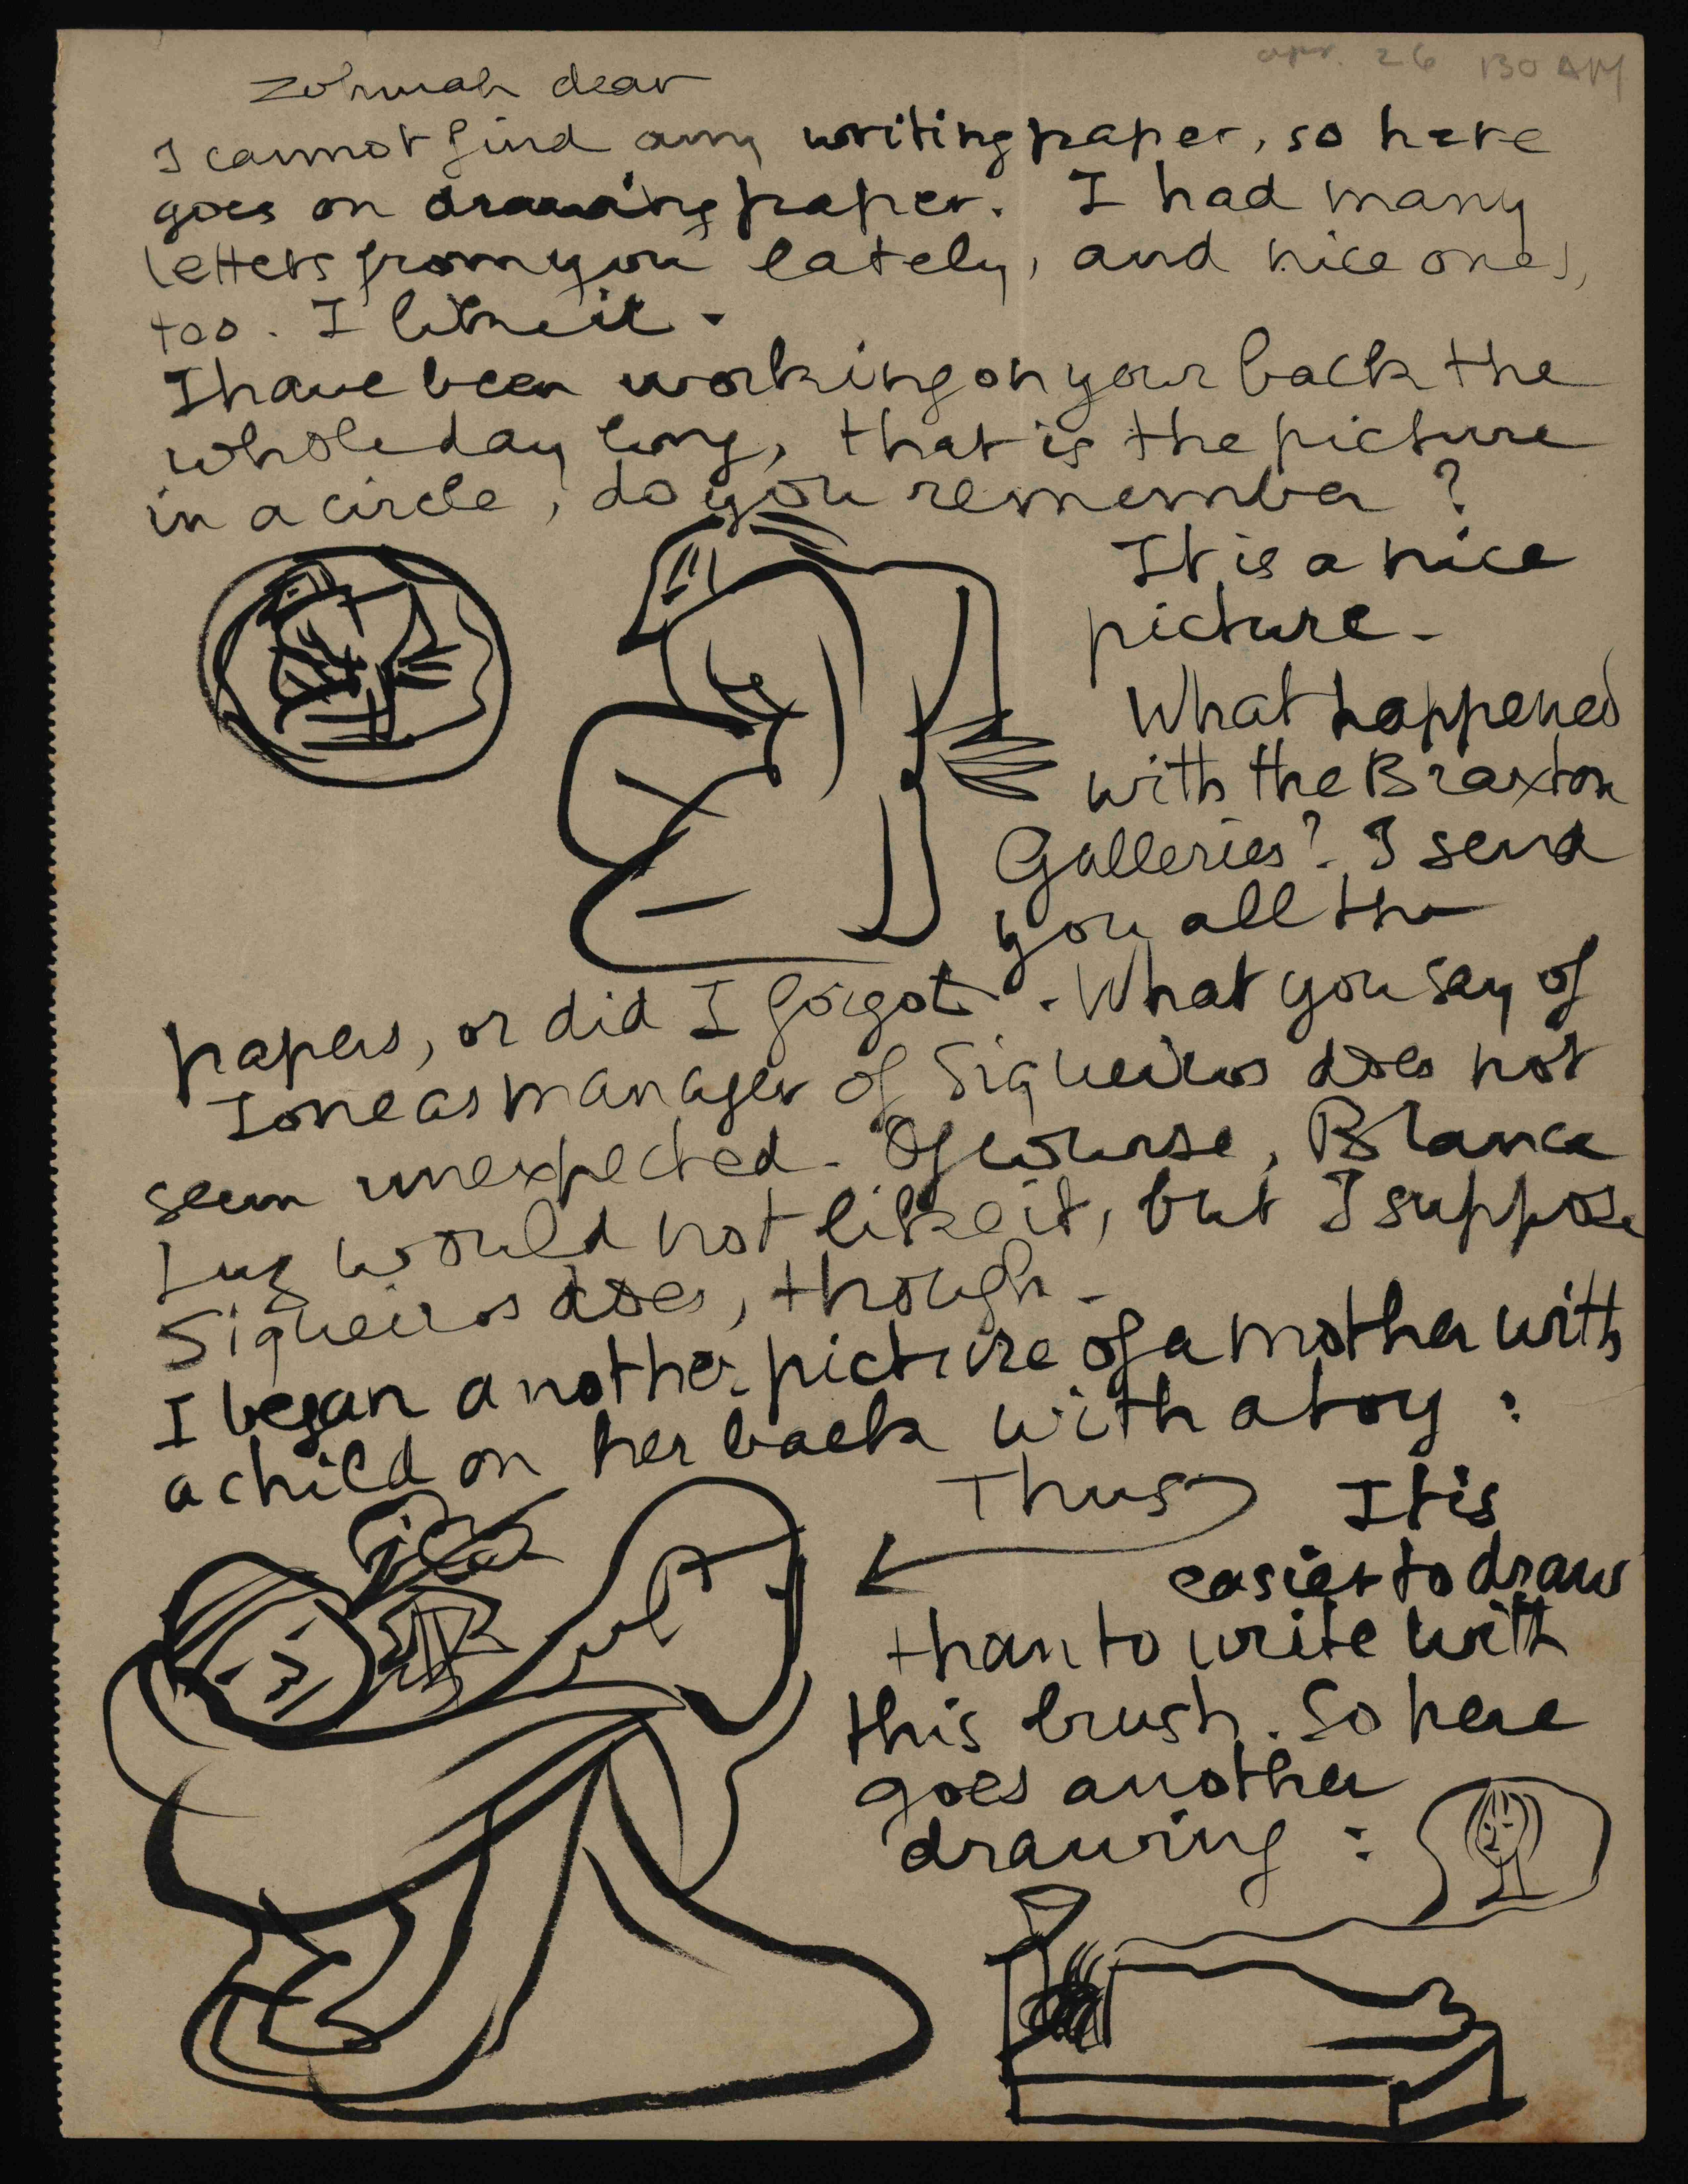 apr. 26 130 AM
Zohmah dear
I cannot find any writing paper, so here
goes on drawing paper. I had many
letters from you lately, and nice ones,
too. I like it.
I have been working on your back the
whole day long, that is the picture
in a circle, do you remember?
It is a nice
picture.
What happened
with the Braxton
Galleries? I send
you all the
papers, or did I forgot. What you say of
Ione as manager of Siqueiros does not
seem unexpected. Of course, Blanca
Luz would not like it, but I suppose
Siqueiros does, though.
I began another picture of a mother with
a child on her back with a toy:
Thus
It is
easier to draw
than to write with
this brush. So here
goes another
drawing: